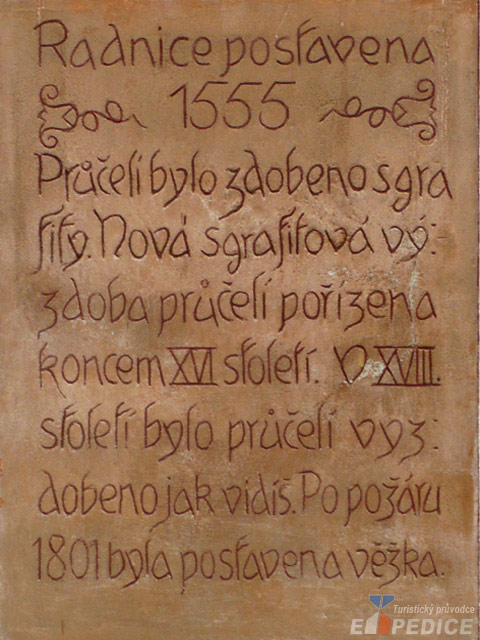 Radnice postavena
1555
Průčelí bylo zdobeno sgra
fity. Nová sgrafitová vý:
zdoba průčelí pořízena
koncem XVI století. V XVIII.
století bylo průčelí vyz:
dobeno jak vidíš. Po požáru
1801 byla postavena věžka.
Turistický průvodce
EXPEDICE